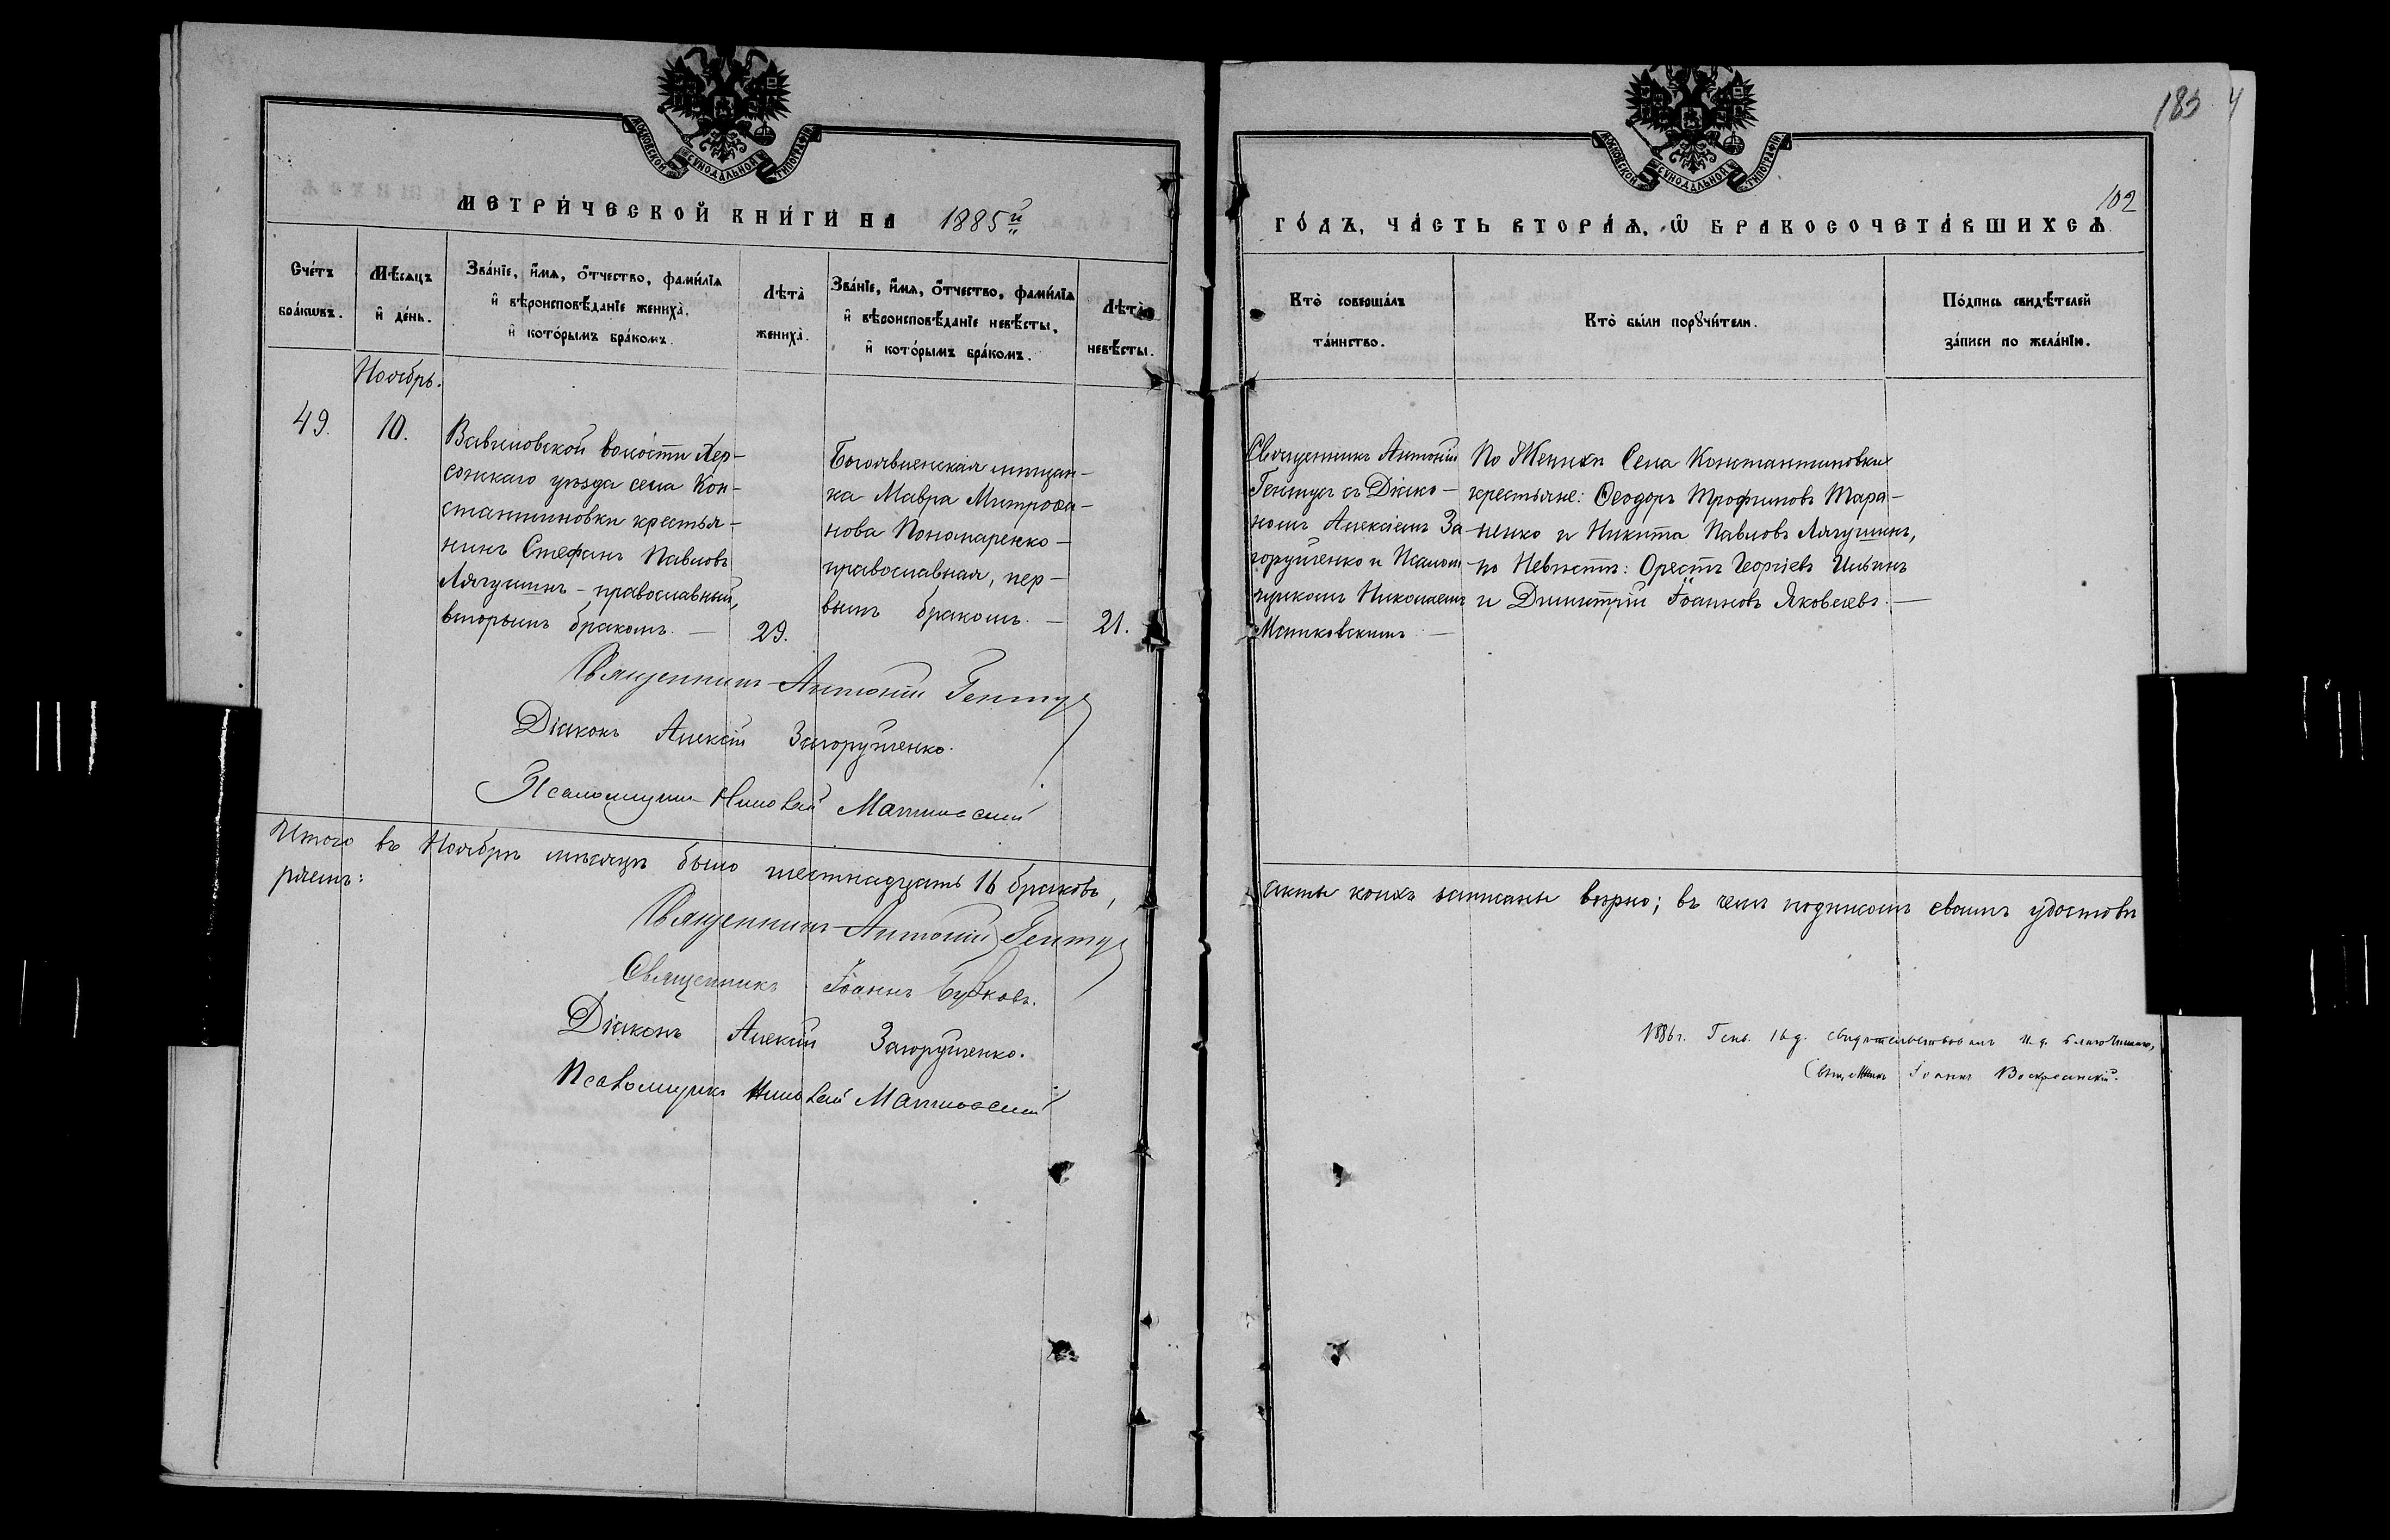 МОСКОВСКОЙ СѴНОДАЛЬНОЙ ТИПОГРАФІИ
МЕТРИ́ЧЕСКОЙ КНИ́ГИ НА 1885й
Сче́тъ бра́кѡвъ.
Мѣ́сяцъ и҆ де́нь.
Зва́нїе, и҆́мѧ, ѻ҆́тчество, фами́лїѧ
и҆ вѣроисповѣ́данїе жениха̀,
и҆ кото́рымъ бра́комъ.
Лѣта̀ жениха̀.
Зва́нїе, и҆́мѧ, ѻ҆́тчество, фами́лїѧ
и҆ вѣроисповѣ́данїе невѣ́сты,
и҆ кото́рымъ бра́комъ.
Лѣта̀ невѣ́сты.
Ноябрь.
49.
10.
Вавиловской волости Хер-
сонскаго уѣзда села Кон-
стантиновки крестья-
нинъ Стефанъ Павловъ
Лягушинъ - православный,
вторымъ бракомъ. —
29.
Богоявленская мѣщан-
ка Мавра Митрофа-
нова Пономаренко —
православная, пер-
вымъ бракомъ. —
21.
Священникъ Антоній Гентуг
Діаконъ Алексій Загоруйченко.
Псаломщикъ Николай Маньковскій
Итого въ Ноябрѣ мѣсяцѣ было шестнадцать 16 браковъ,
ряемъ:
Священникъ Антоній Гентуг
Священникъ Іоаннъ Бутковъ.
Діаконъ Алексій Загоруйченко.
Псаломщикъ Николай Маньковскій
183
4
МОСКОВСКОЙ СѴНОДАЛЬНОЙ ТИПОГРАФІИ
102
ГО́ДЪ, ЧА́СТЬ ВТОРА́Ѧ, Ѽ БРАКОСОЧЕТА́ВШИХСѦ.
Кто̀ соверша́лъ
та́инство.
Кто̀ бы́ли порꙋчи́тели.
По́дпись свидѣ́телей
за́писи по жела́нїю.
Священникъ Антоній
Гентуг съ Діако-
номъ Алексіемъ За
горуйченко и Псалом
щикомъ Николаемъ
Маньковскимъ —
По Женихѣ Села Константиновки
крестьяне: Ѳеодоръ Трофимовъ Тара-
ненко и Никита Павловъ Лягушинъ,
по Невѣстѣ: Орестъ Георгіевъ Ильинъ
и Димитрій Іоанновъ Яковлевъ. —
акты коихъ записаны вѣрно; въ чемъ подписомъ своимъ удостовѣ
1886 г. Генв. 16 д. свидѣтельствовалъ И. д. Благочиннаго,
Священникъ Іоаннъ Воскресенскій.